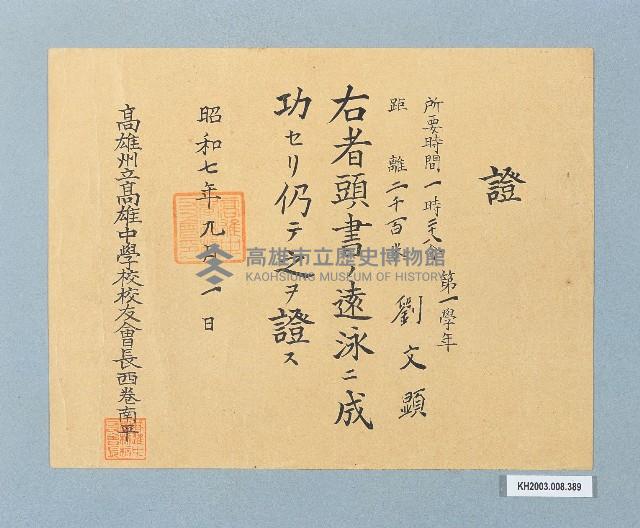 證
第一學年
劉文顯
所要時間 一時
距離 二千百米
右者頭書ノ遠泳ニ成
功セリ仍テ之ヲ證ス
昭和七年九月一日
高雄州立高雄中學校校友會長西巻南平
高雄市立歷史博物館
KAOHSIUNG MUSEUM OF HISTORY
KH2003.008.389